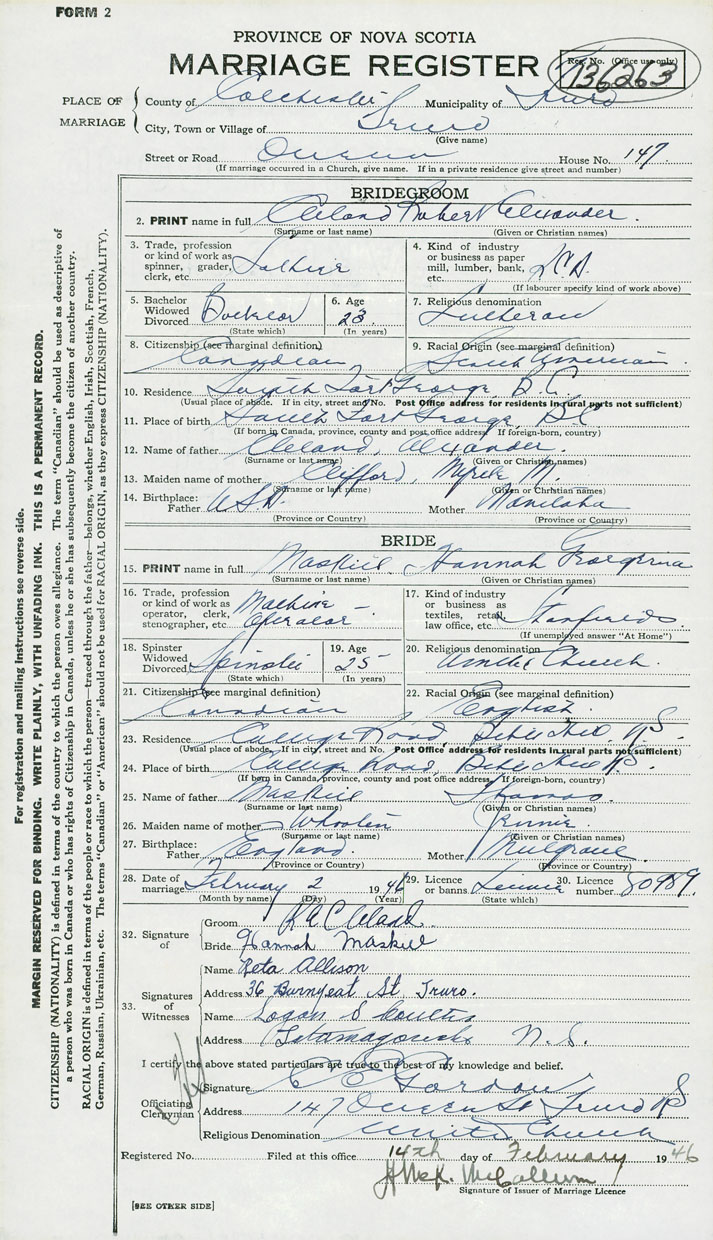 FORM 2
PROVINCE OF NOVA SCOTIA
MARRIAGE REGISTER
Reg. No. (Office use only)
136263
PLACE OF MARRIAGE
County of Colchester Municipality of Truro
City, Town or Village of Truro
(Give name)
Street or Road Queen House No. 147
(If marriage occurred in a Church, give name. If in a private residence give street and number)
BRIDEGROOM
2. PRINT name in full Cleland Robert Alexander.
(Surname or last name) (Given or Christian names)
3. Trade, profession or kind of work as spinner, grader, clerk, etc. Soldier
4. Kind of industry or business as paper mill, lumber, bank, etc.
(If labourer specify kind of work above)
5. Bachelor Widowed Divorced Bachelor
(State which)
6. Age 23
(In years)
7. Religious denomination Lutheran
8. Citizenship (see marginal definition) Canadian
9. Racial Origin (see marginal definition) Scotch American
10. Residence South Fort George, B.C.
(Usual place of abode. If in city, street and No. Post Office address for residents in rural parts not sufficient)
11. Place of birth South Fort George, B.C.
(If born in Canada, province, county and post office address. If foreign-born, country)
12. Name of father Cleland, Alexander.
(Surname or last name) (Given or Christian names)
13. Maiden name of mother Clifford, Myrtle M.
(Surname or last name) (Given or Christian names)
14. Birthplace: Father U.S.A. Mother Manitoba
(Province or Country) (Province or Country)
BRIDE
15. PRINT name in full Maskill, Hannah Georgena
(Surname or last name) (Given or Christian names)
16. Trade, profession or kind of work as operator, clerk, stenographer, etc. Machine - Operator
17. Kind of industry or business as textiles, retail, law office, etc. Stanfields
(If unemployed answer "At Home")
18. Spinster Widowed Divorced Spinster
(State which)
19. Age 25
(In years)
20. Religious denomination United Church.
21. Citizenship (see marginal definition) Canadian
22. Racial Origin (see marginal definition) English.
23. Residence College Road, Bible Hill, N.S.
(Usual place of abode. If in city, street and No. Post Office address for residents in rural parts not sufficient)
24. Place of birth College Road, Bible Hill N.S.
(If born in Canada, province, county and post office address. If foreign-born, country)
25. Name of father Maskill Thomas
(Surname or last name) (Given or Christian names)
26. Maiden name of mother Jennie
(Surname or last name) (Given or Christian names)
27. Birthplace: Father England. Mother Mulgrave
(Province or Country) (Province or Country)
28. Date of marriage February 2 1946
(Month by name) (Day) (Year)
29. Licence or banns License
(State which)
30. Licence number 80989.
32. Signature of
Groom R A Cleland.
Bride Hannah Maskill
33. Signatures of Witnesses
Name Reta Allison
Address 36 Burnyeat St Truro.
Name Logan S Coulter
Address Tatamagouche N.S.
I certify the above stated particulars are true to the best of my knowledge and belief.
Officiating Clergyman
Signature Gordon
Address 147 Queen St Truro NS
Religious Denomination United Church
Registered No. Filed at this office 14th day of February 1946
McCallum
Signature of Issuer of Marriage Licence
[SEE OTHER SIDE]
For registration and mailing instructions see reverse side.
MARGIN RESERVED FOR BINDING. WRITE PLAINLY, WITH UNFADING INK. THIS IS A PERMANENT RECORD.
CITIZENSHIP (NATIONALITY) is defined in terms of the country to which the person owes allegiance. The term "Canadian" should be used as descriptive of
a person who was born in Canada or who has rights of Citizenship in Canada, unless he or she has subsequently become the citizen of another country.
RACIAL ORIGIN is defined in terms of the people or race to which the person—traced through the father—belongs, whether English, Irish, Scottish, French,
German, Russian, Ukrainian, etc. The terms "Canadian" or "American" should not be used for RACIAL ORIGIN, as they express CITIZENSHIP (NATIONALITY).